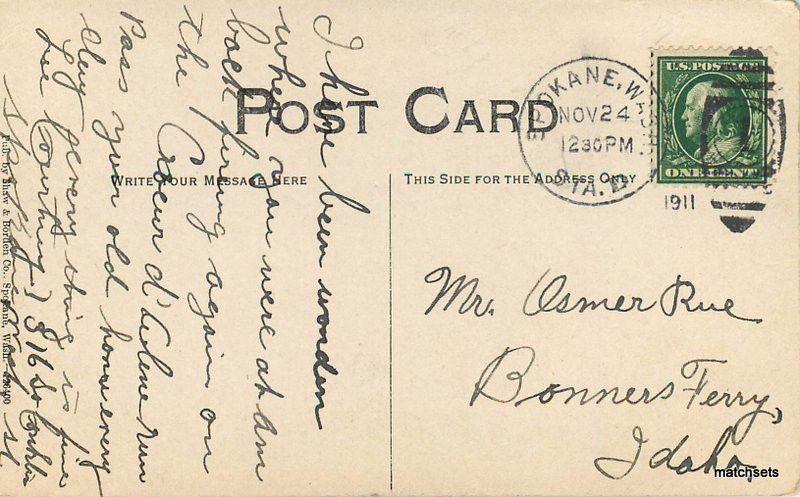 POST CARD
WRITE YOUR MESSAGE HERE
THIS SIDE FOR THE ADDRESS ONLY
I have been wonden
where you were at am
back firing again on
the Croeur d'Alene run
Pass your old house every
day every thing is fine
Lee Courtney 816 So
Spokane Wash
Pub. by Shaw & Borden Co., Spokane, Wash.
SPOKANE, WASH.
NOV 24
1230 PM
STA.
1911
U.S. POSTAGE
ONE CENT
Mr. Osmer Rue
Bonners Ferry,
Idaho.
matchsets